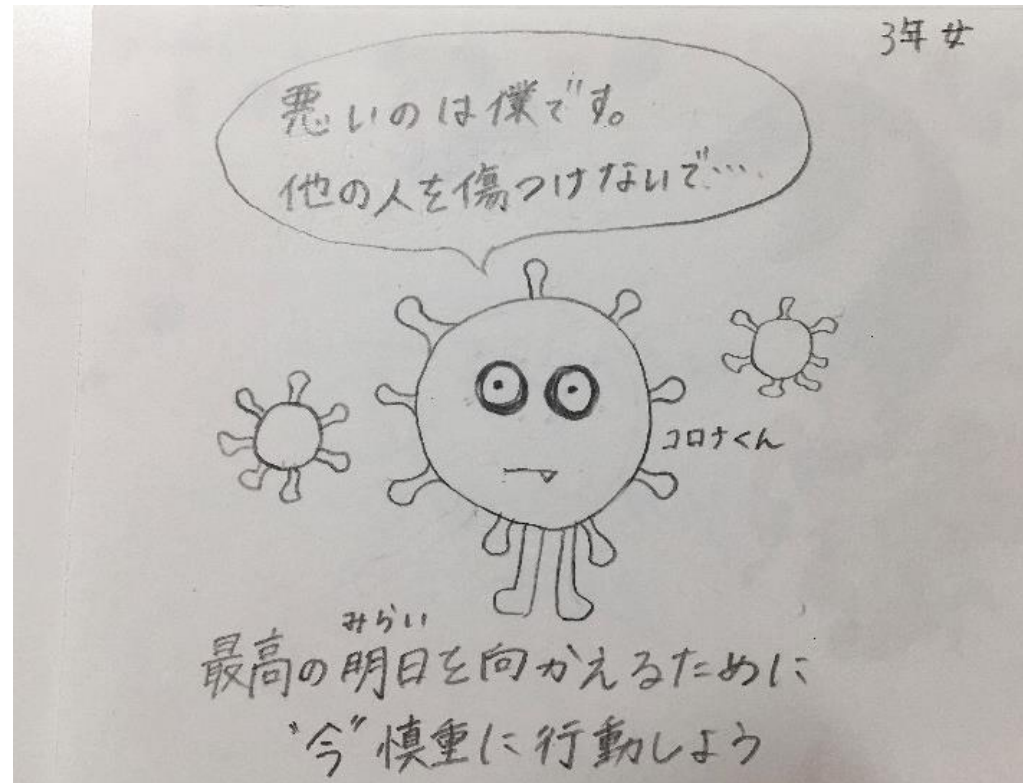 3年 女
悪いのは僕です。
他の人を傷つけないで…
コロナくん
みらい
最高の明日を向かえるために
“今”慎重に行動しよう